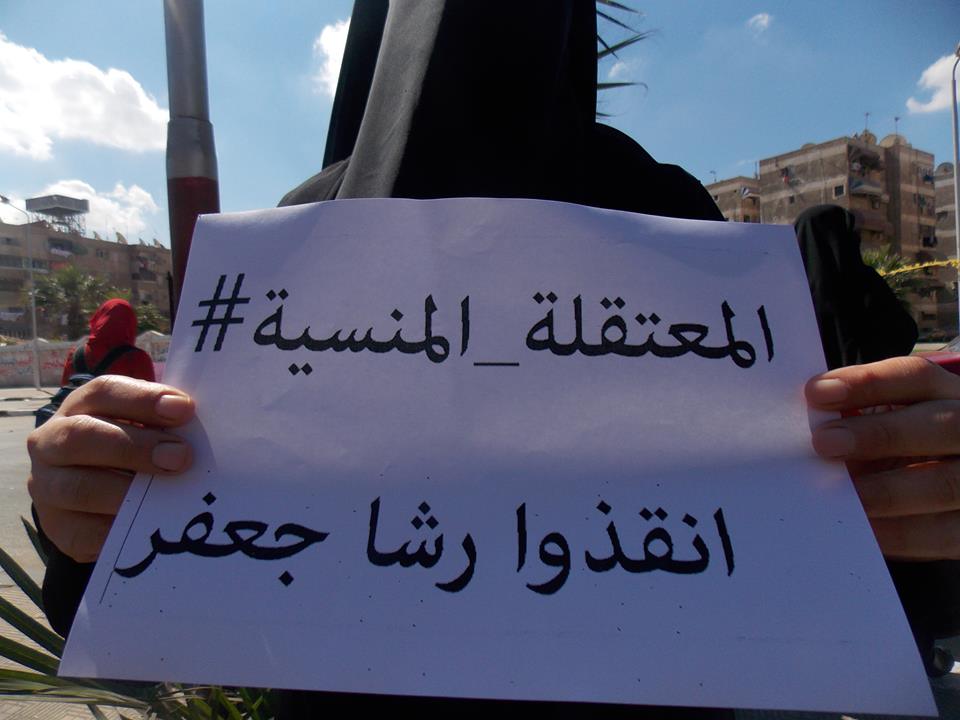 المعتقلة_المنسية#
انقذوا رشا جعفر